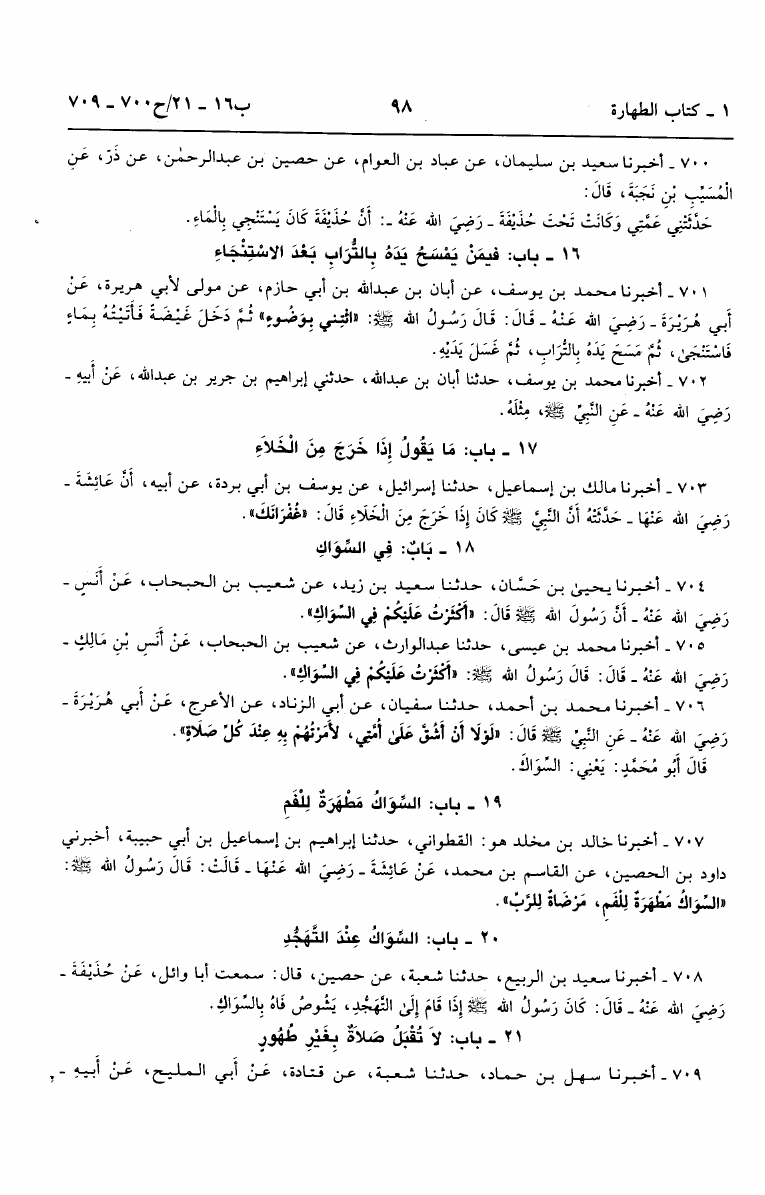 ١ ـ كتاب الطهارة ٩٨ ب١٦ ـ ٢١/ح٧٠٠ ـ ٧٠٩
٧٠٠ ـ أخبرنا سعيد بن سليمان، عن عباد بن العوام، عن حصين بن عبدالرحمٰن، عن ذَرّ، عَنِ
الْمُسَيِّبِ بْنِ نَجَبَةَ، قَالَ:
حَدَّثَتْنِي عَمَّتِي وَكَانَتْ تَحْتَ حُذَيْفَةَ ـ رَضِيَ الله عَنْهُ ـ: أَنَّ حُذَيْفَةَ كَانَ يَسْتَنْجِي بِالْمَاءِ.
١٦ ـ باب: فيمَنْ يَمْسَحُ يَدَهُ بِالتُّرَابِ بَعْدَ الاسْتِنْجَاءِ
٧٠١ ـ أخبرنا محمد بن يوسف، عن أبان بن عبدالله بن أبي حازم، عن مولى لأبي هريرة، عَنْ
أبي هُرَيْرَةَ ـ رَضِيَ الله عَنْهُ ـ قَالَ: قَالَ رَسُولُ الله ﷺ: «ائْتِني بِوَضُوءٍ» ثُمَّ دَخَلَ غَيْضَةً فَأَتَيْتُهُ بِمَاءٍ
فَاسْتَنْجَىٰ، ثُمَّ مَسَحَ يَدَهُ بِالتُّرَابِ، ثُمَّ غَسَلَ يَدَيْهِ.
٧٠٢ ـ أخبرنا محمد بن يوسف، حدثنا أبان بن عبدالله، حدثني إبراهيم بن جرير بن عبدالله، عَنْ أَبيهِ ـ
رَضِيَ الله عَنْهُ ـ عَنِ النَّبِيِّ ﷺ، مِثْلَهُ.
١٧ ـ باب: مَا يَقُولُ إِذَا خَرَجَ مِنَ الْخَلَاءِ
٧٠٣ ـ أخبرنا مالك بن إسماعيل، حدثنا إسرائيل، عن يوسف بن أبي بردة، عن أبيه، أَنَّ عَائِشَةَ ـ
رَضِيَ الله عَنْهَا ـ حَدَّثَتْهُ أَنَّ النَّبِيَّ ﷺ كَانَ إِذَا خَرَجَ مِنَ الْخَلَاءِ قَالَ: «غُفْرَانَكَ».
١٨ ـ بَابٌ: فِي السِّوَاكِ
٧٠٤ ـ أخبرنا يحيىٰ بن حَسَّان، حدثنا سعيد بن زيد، عن شعيب بن الحبحاب، عَنْ أَنَسٍ ـ
رَضِيَ الله عَنْهُ ـ أَنَّ رَسُولَ الله ﷺ قَالَ: «أَكْثَرْتُ عَلَيْكُمْ فِي السِّوَاكِ».
٧٠٥ ـ أخبرنا محمد بن عيسى، حدثنا عبدالوارث، عن شعيب بن الحبحاب، عَنْ أَنَسِ بْنِ مَالِكٍ ـ
رَضِيَ الله عَنْهُ ـ قَالَ: قَالَ رَسُولُ الله ﷺ: «أَكْثَرْتُ عَلَيْكُمْ فِي السِّوَاكِ».
٧٠٦ ـ أخبرنا محمد بن أحمد، حدثنا سفيان، عن أبي الزناد، عن الأعرج، عَنْ أبي هُرَيْرَةَ ـ
رَضِيَ الله عَنْهُ ـ عَنِ النَّبِيِّ ﷺ قَالَ: «لَوْلَا أَنْ أَشُقَّ عَلَىٰ أُمَّتِي، لأَمَرْتُهُمْ بِهِ عِنْدَ كُلِّ صَلَاةٍ».
قَالَ أَبُو مُحَمَّدٍ: يَعْنِي: السِّوَاكَ.
١٩ ـ باب: السِّوَاكُ مَطْهَرَةٌ لِلْفَمِ
٧٠٧ ـ أخبرنا خالد بن مخلد هو: القطواني، حدثنا إبراهيم بن إسماعيل بن أبي حبيبة، أخبرني
داود بن الحصين، عن القاسم بن محمد، عَنْ عَائِشَةَ ـ رَضِيَ الله عَنْهَا ـ قَالَتْ: قَالَ رَسُولُ الله ﷺ:
«السِّوَاكُ مَطْهَرَةٌ لِلْفَمِ، مَرْضَاةٌ لِلرَّبِّ».
٢٠ ـ باب: السِّوَاكُ عِنْدَ التَّهَجُّدِ
٧٠٨ ـ أخبرنا سعيد بن الربيع، حدثنا شعبة، عن حصين، قال: سمعت أبا وائل، عَنْ حُذَيْفَةَ ـ
رَضِيَ الله عَنْهُ ـ قَالَ: كَانَ رَسُولُ الله ﷺ إِذَا قَامَ إِلَىٰ التَّهَجُّدِ، يَشُوصُ فَاهُ بِالسِّوَاكِ.
٢١ ـ باب: لاَ تُقْبَلُ صَلاَةٌ بِغَيْرِ طُهُورٍ
٧٠٩ ـ أخبرنا سهل بن حماد، حدثنا شعبة، عن قتادة، عَنْ أَبي المليح، عَنْ أَبيهِ ـ